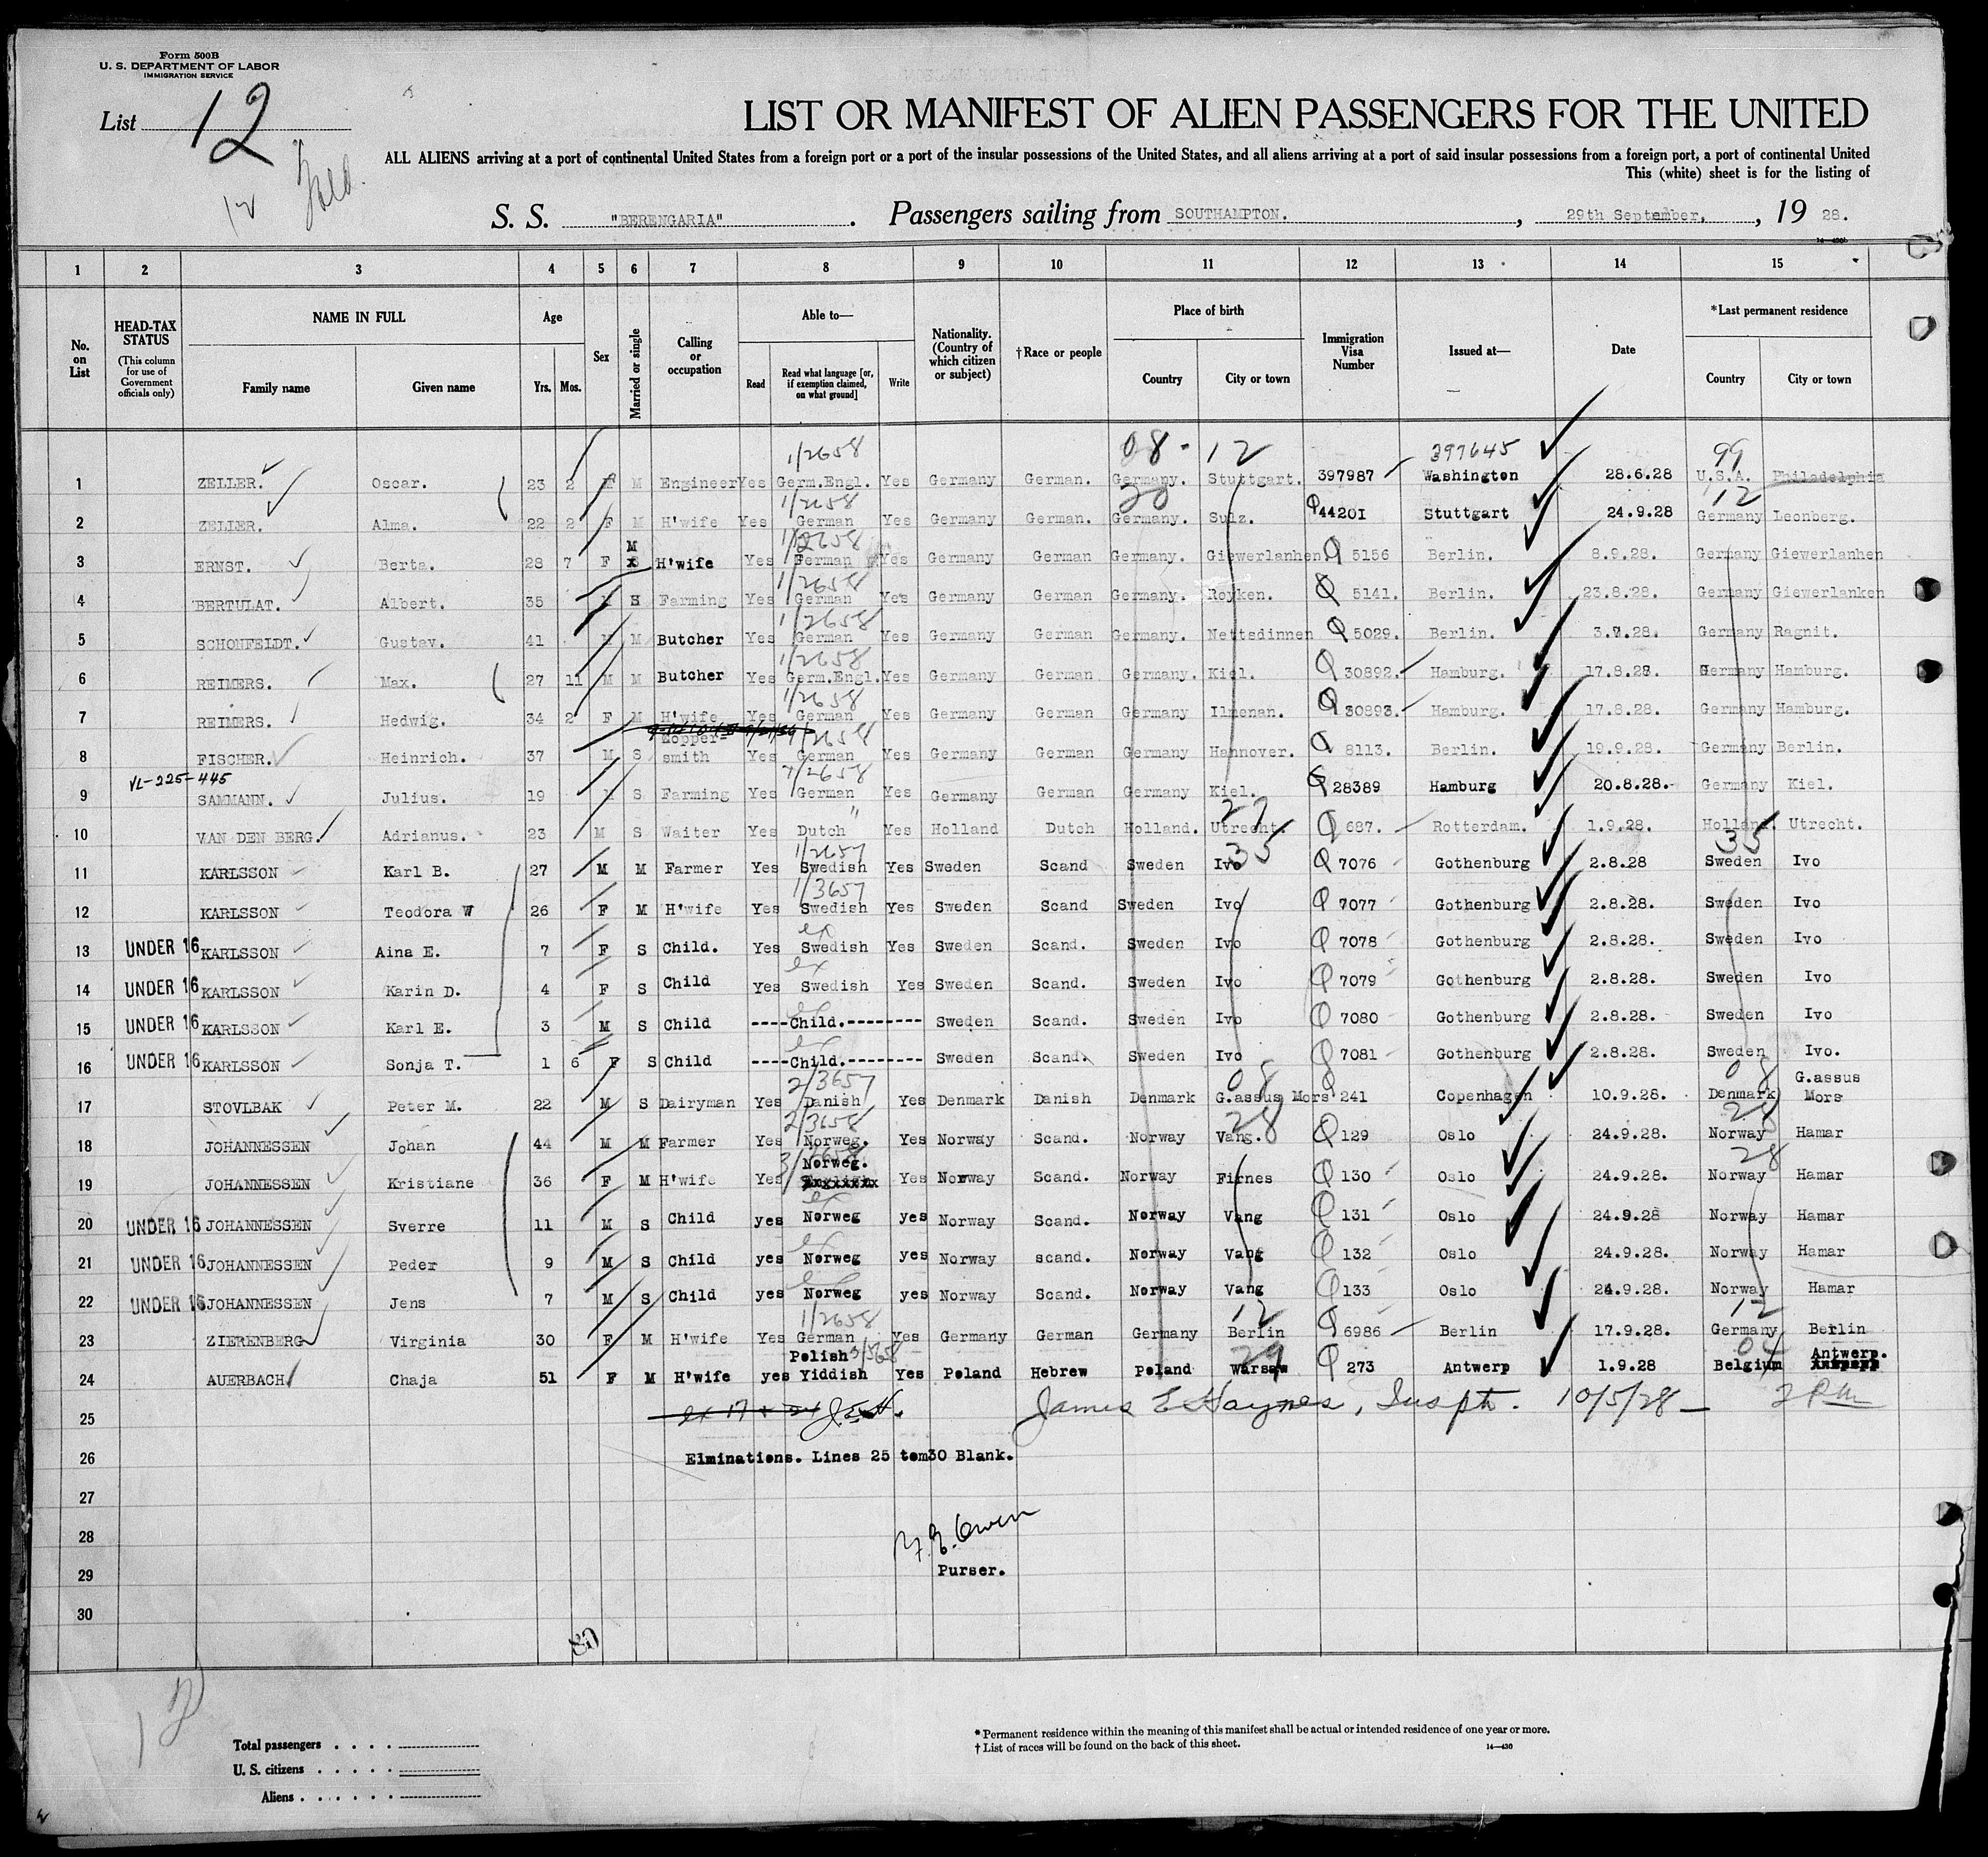 Form 500B
U. S. DEPARTMENT OF LABOR
IMMIGRATION SERVICE
List 12
LIST OR MANIFEST OF ALIEN PASSENGERS FOR THE UNITED
ALL ALIENS arriving at a port of continental United States from a foreign port or a port of the insular possessions of the United States, and all aliens arriving at a port of said insular possessions from a foreign port, a port of continental United
This (white) sheet is for the listing of
12
S. S. "BERENGARIA". Passengers sailing from SOUTHAMPTON. , 29th September. , 19 28.
14—430b
1 2 3 4 5 6 7 8 9 10 11 12 13 14 15
No. on List
HEAD-TAX STATUS
(This column for use of Government officials only)
NAME IN FULL
Family name Given name
Age
Yrs. Mos.
Sex
Married or single
Calling or occupation
Able to—
Read
Read what language [or, if exemption claimed, on what ground]
Write
Nationality. (Country of which citizen or subject)
†Race or people
Place of birth
Country City or town
Immigration Visa Number
Issued at—
Date
*Last permanent residence
Country City or town
1/2658 08 - 12 397645 99
1 ZELLER. Oscar. 23 2 M M Engineer Yes Germ.Engl. Yes Germany German. Germany. Stuttgart. 397987 Washington 28.6.28 U.S.A. Philadelphia
1/2658 20 12
2 ZELLER. Alma. 22 2 F M H'wife Yes German Yes Germany German. Germany. Sulz. Q 44201 Stuttgart 24.9.28 Germany Leonberg.
M 1/2658
3 ERNST. Berta. 28 7 F H'wife Yes German Yes Germany German Germany. Giewerlanhen Q 5156 Berlin. 8.9.28. Germany Giewerlanhen
1/2658
4 BERTULAT. Albert. 35 M S Farming Yes German Yes Germany German Germany. Royken. Q 5141. Berlin. 23.8.28. Germany Giewerlanken
1/2658
5 SCHONFELDT. Gustav. 41 M M Butcher Yes German Yes Germany German Germany. Nettsdinnen Q 5029. Berlin. 3.7.28. Germany Ragnit.
1/2658
6 REIMERS. Max. 27 11 M M Butcher Yes Germ.Engl. Yes Germany German Germany. Kiel. Q 30892. Hamburg. 17.8.28. Germany Hamburg.
1/2658
7 REIMERS. Hedwig. 34 2 F M H'wife Yes German Yes Germany German Germany Ilmenan. Q 30893. Hamburg. 17.8.28. Germany Hamburg.
1/2658
8 FISCHER. Heinrich. 37 M S Kopper-smith Yes German Yes Germany German Germany Hannover. Q 8113. Berlin. 19.9.28. Germany Berlin.
VL-225-445 1/2658
9 SAMMANN. Julius. 19 M S Farming Yes German Yes Germany German Germany Kiel. Q 28389 Hamburg 20.8.28. Germany Kiel.
" 27
10 VAN DEN BERG. Adrianus. 23 M S Waiter Yes Dutch Yes Holland Dutch Holland. Utrecht. Q 687. Rotterdam. 1.9.28. Holland. Utrecht.
1/2657 35 35
11 KARLSSON Karl B. 27 M M Farmer Yes Swedish Yes Sweden Scand Sweden Ivo Q 7076 Gothenburg 2.8.28 Sweden Ivo
1/3657
12 KARLSSON Teodora W 26 F M H'wife Yes Swedish Yes Sweden Scand Sweden Ivo Q 7077 Gothenburg 2.8.28. Sweden Ivo
ex
13 UNDER 16 KARLSSON Aina E. 7 F S Child. Yes Swedish Yes Sweden Scand. Sweden Ivo Q 7078 Gothenburg 2.8.28. Sweden Ivo
ex
14 UNDER 16 KARLSSON Karin D. 4 F S Child Yes Swedish Yes Sweden Scand. Sweden Ivo Q 7079 Gothenburg 2.8.28. Sweden Ivo
ex
15 UNDER 16 KARLSSON Karl E. 3 M S Child ----Child.-------- Sweden Scand. Sweden Ivo Q 7080 Gothenburg 2.8.28. Sweden Ivo
ex
16 UNDER 16 KARLSSON Sonja T. 1 6 F S Child ----Child.-------- Sweden Scand. Sweden Ivo Q 7081 Gothenburg 2.8.28. Sweden Ivo.
2/3657 08 08
17 STOVLBAK Peter M. 22 M S Dairyman Yes Danish Yes Denmark Danish Denmark G.assus Mors 241 Copenhagen 10.9.28. Denmark G.assus Mors
2/3658 28 28
18 JOHANNESSEN Johan 44 M M Farmer Yes Norweg. Yes Norway Scand. Norway Vang. Q 129 Oslo 24.9.28. Norway Hamar
3/2658 28
19 JOHANNESSEN Kristiane 36 F M H'wife Yes Norweg. Yes Norway Scand. Norway Firnes Q 130 Oslo 24.9.28. Norway Hamar
ex
20 UNDER 16 JOHANNESSEN Sverre 11 M S Child yes Norweg yes Norway Scand. Norway Vang Q 131 Oslo 24.9.28 Norway Hamar
ex
21 UNDER 16 JOHANNESSEN Peder 9 M S Child yes Norweg yes Norway scand. Norway Vang Q 132 Oslo 24.9.28. Norway Hamar
ex
22 UNDER 16 JOHANNESSEN Jens 7 M S Child yes Norweg yes Norway Scand. Norway Vang Q 133 Oslo 24.9.28. Norway Hamar
1/2658 12 12
23 ZIERENBERG Virginia 30 F M H'wife Yes German Yes Germany German Germany Berlin Q 6986 Berlin 17.9.28. Germany Berlin
Polish 29 04 Antwerp.
24 AUERBACH Chaja 51 F M H'wife yes Yiddish Yes Poland Hebrew Poland Warsaw Q 273 Antwerp 1.9.28 Belgium
25 ex 17 + 24 J.E.H. James E Haynes, Insptr. 10/5/28 — 2 PM
26 Elminations. Lines 25 tom30 Blank.
27
28
29 Purser.
30
80
Total passengers . . . .
U. S. citizens . . . . .
Aliens . . . . . .
* Permanent residence within the meaning of this manifest shall be actual or intended residence of one year or more.
† List of races will be found on the back of this sheet.
14—430